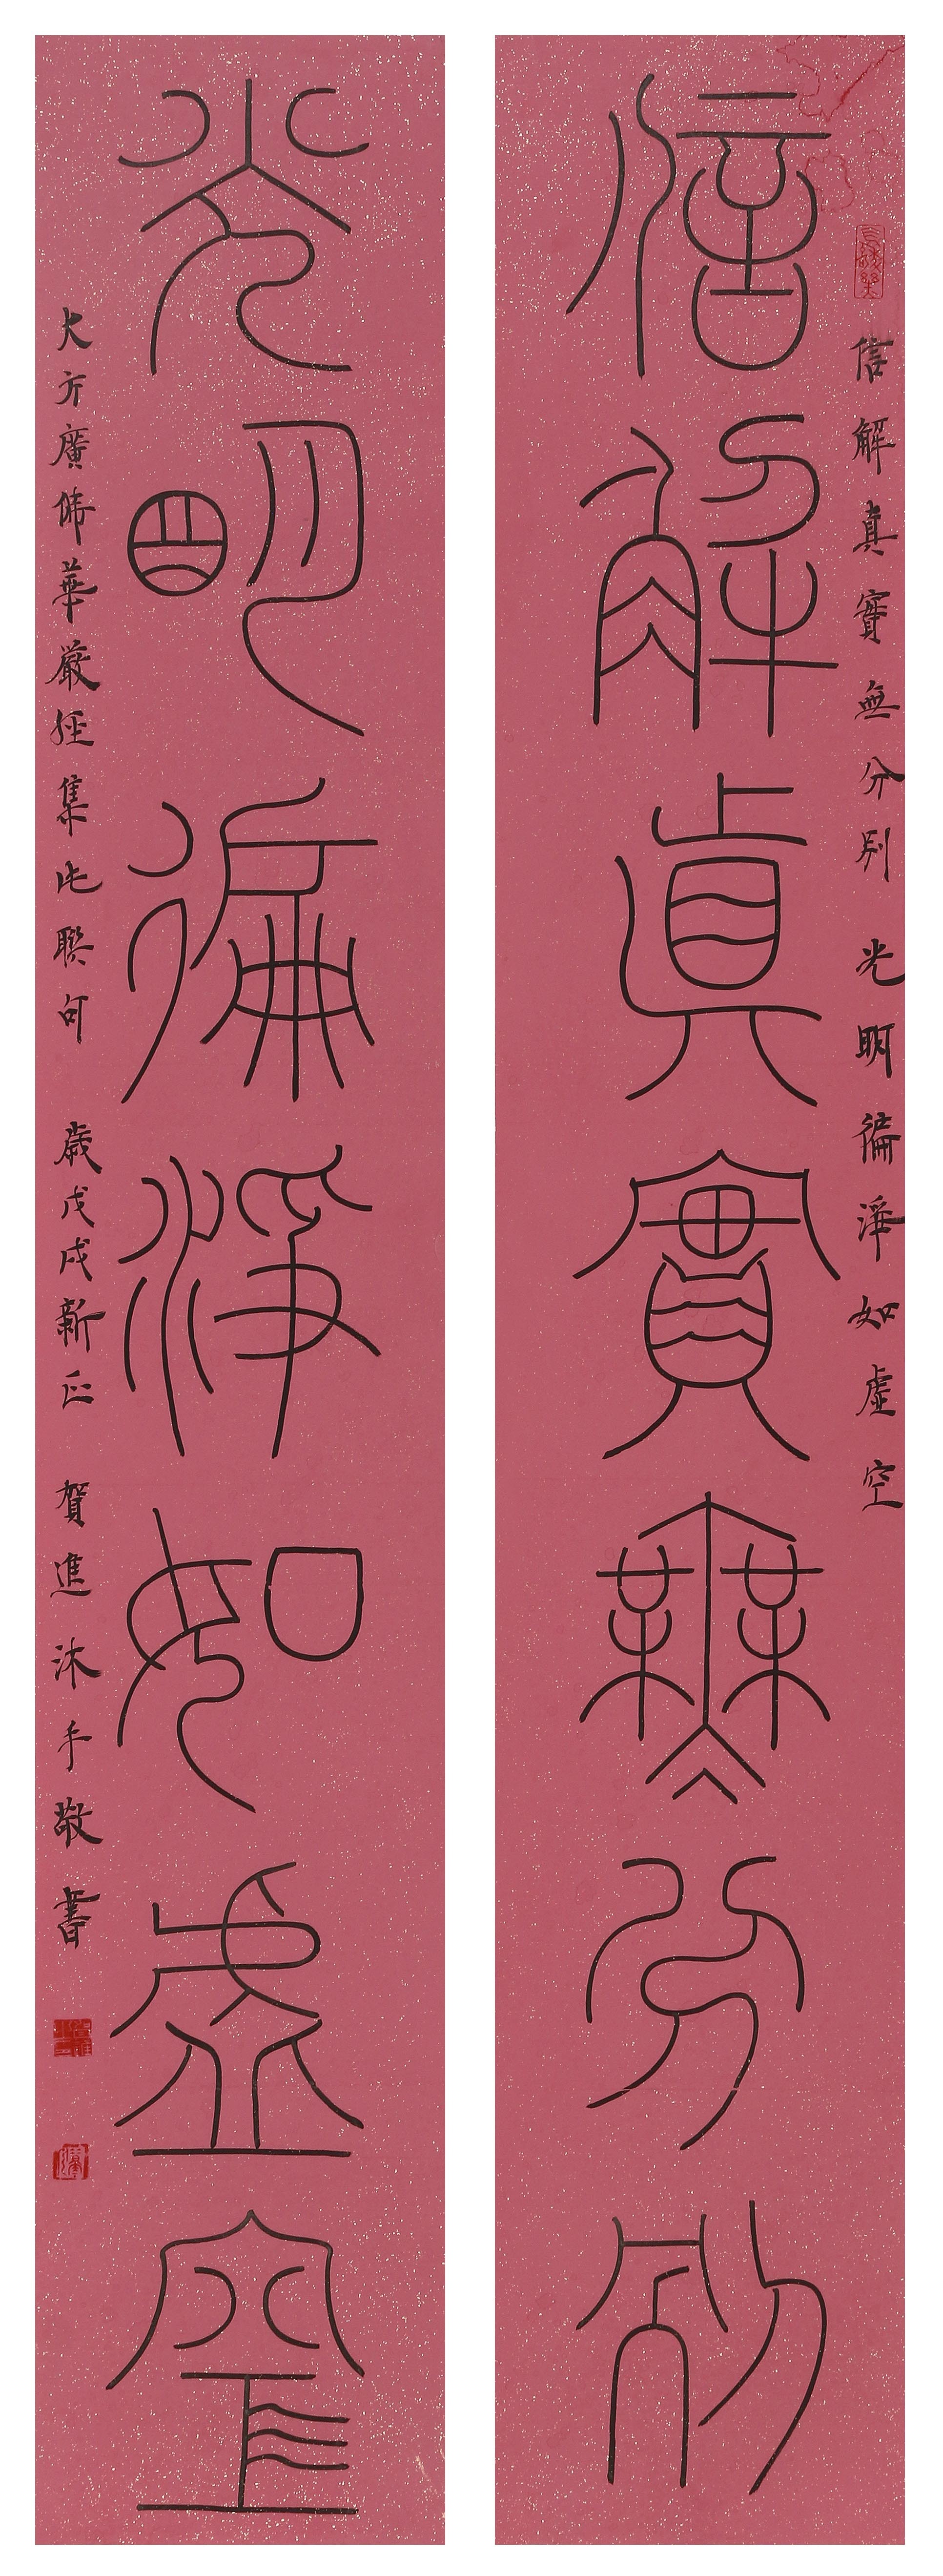 信解真實無分別
信解真實無分別 光明徧淨如虛空
光明徧淨如虛空
大方廣佛華嚴經集此聯句 歲戊戌新正 賀進沐手敬書